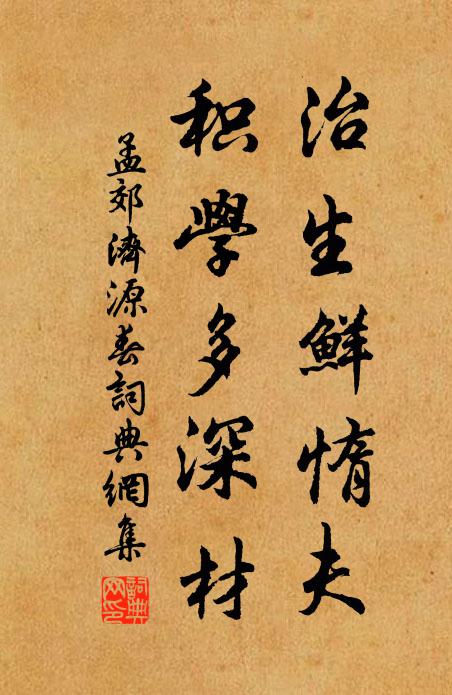 治生鮮惰夫
积學多深材
孟郊濟源春詞典網集
詞典網印